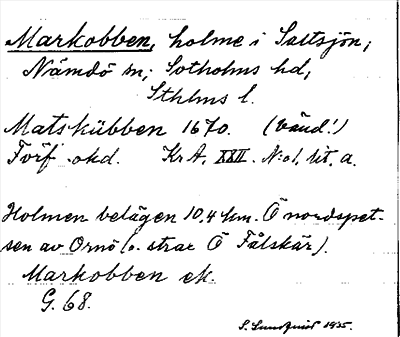 Markobben, holme i Saltsjön,
Nämdö sn; Sotholms hd,
Sthlms l.
Matskübben 1670. (Vänd!)
Förf. okd. KrA. XXII. N:o 1. lit. a.
Holmen belägen 10,4 km. Ö nordspet-
sen av Ornö (o. strax Ö Fålskär).
Markobben ek.
G. 68.
S. Lundquist 1935.